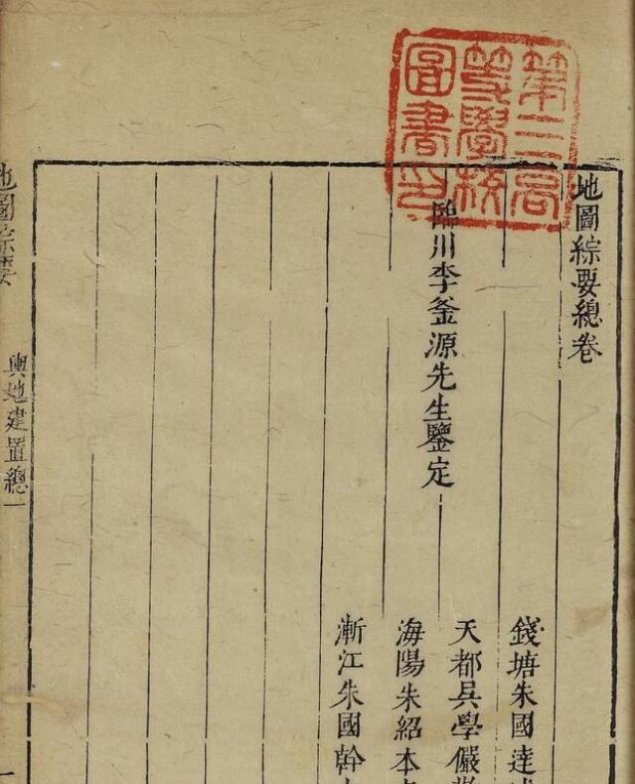 第三高
等學校
圖書印
地圖綜要總卷
臨川李釜源先生鑒定
錢塘朱國達
天都吳學儼
海陽朱紹本
漸江朱國幹
地圖綜要
輿地建置總一